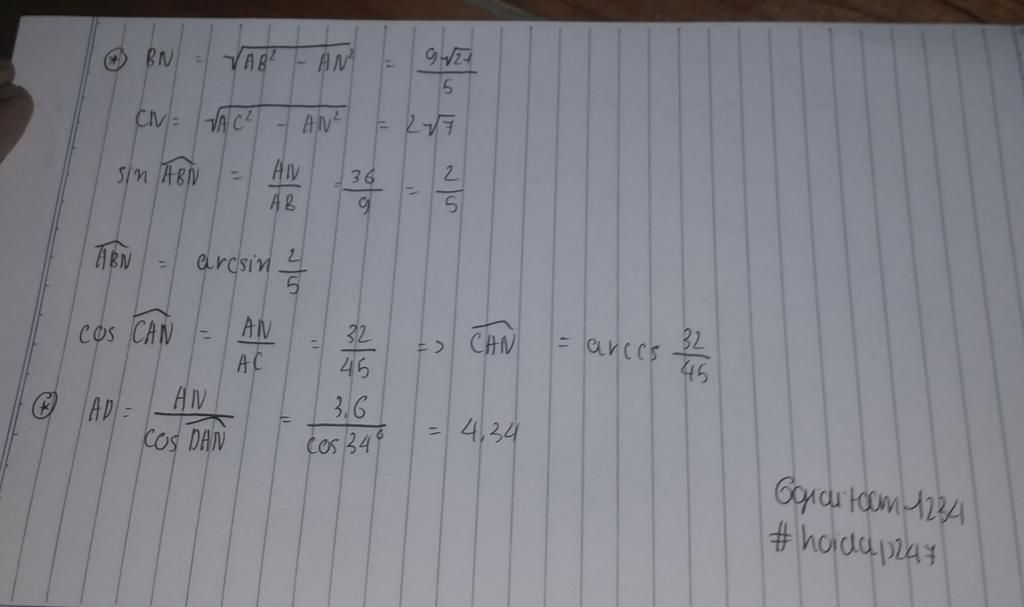 ⊛ BN = √(AB² - AN²) = 9√21/5
CN = √(AC² - AN²) = 2√7
sin ABN^ = AN/AB = 36/9 = 2/5
ABN^ = arcsin 2/5
cos CAN^ = AN/AC = 32/45 => CAN^ = arccos 32/45
⊛ AD = AN/cos DAN^ = 3,6/cos 34° = 4,34
#hoidap247